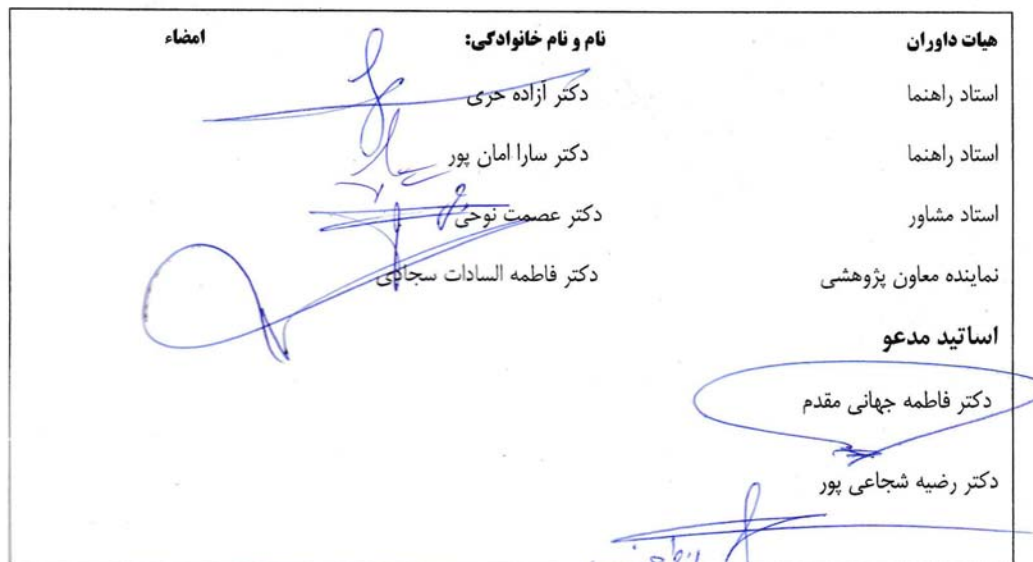 هیات داوران نام و نام خانوادگی: امضاء
استاد راهنما دکتر آزاده حری
استاد راهنما دکتر سارا امان پور
استاد مشاور دکتر عصمت نوحی
نماینده معاون پژوهشی دکتر فاطمه السادات سجادی
اساتید مدعو
دکتر فاطمه جهانی مقدم
دکتر رضیه شجاعی پور